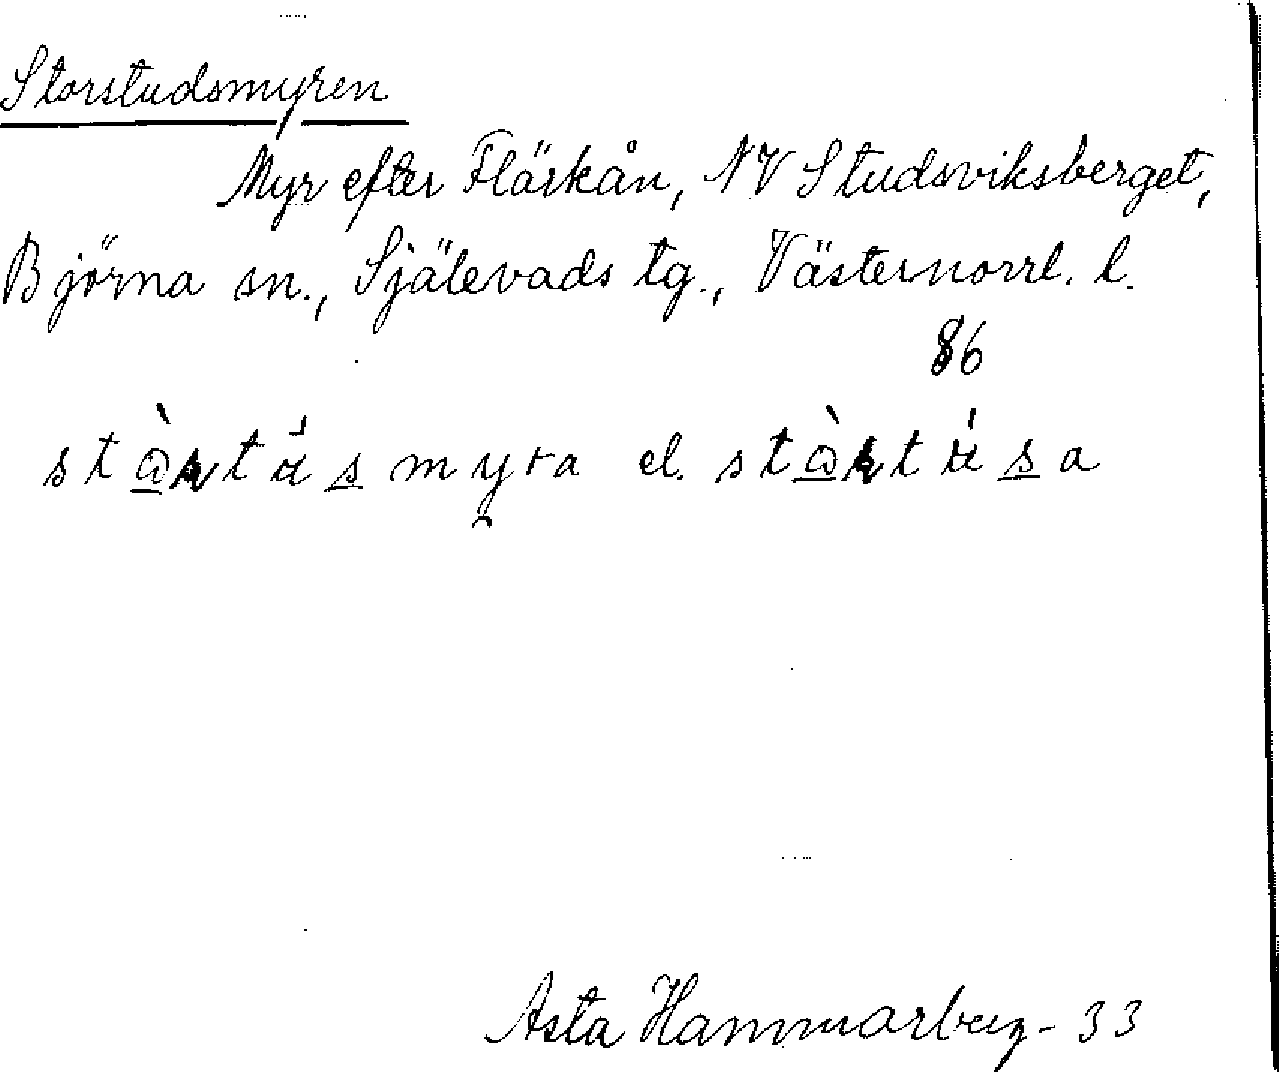 Storstudsmyren
Myr efter Fläskån, NV Studsviksberget,
Björna sn., Själevads tg., Västernorrl. l.
86
el.
Asta Hammarberg - 33